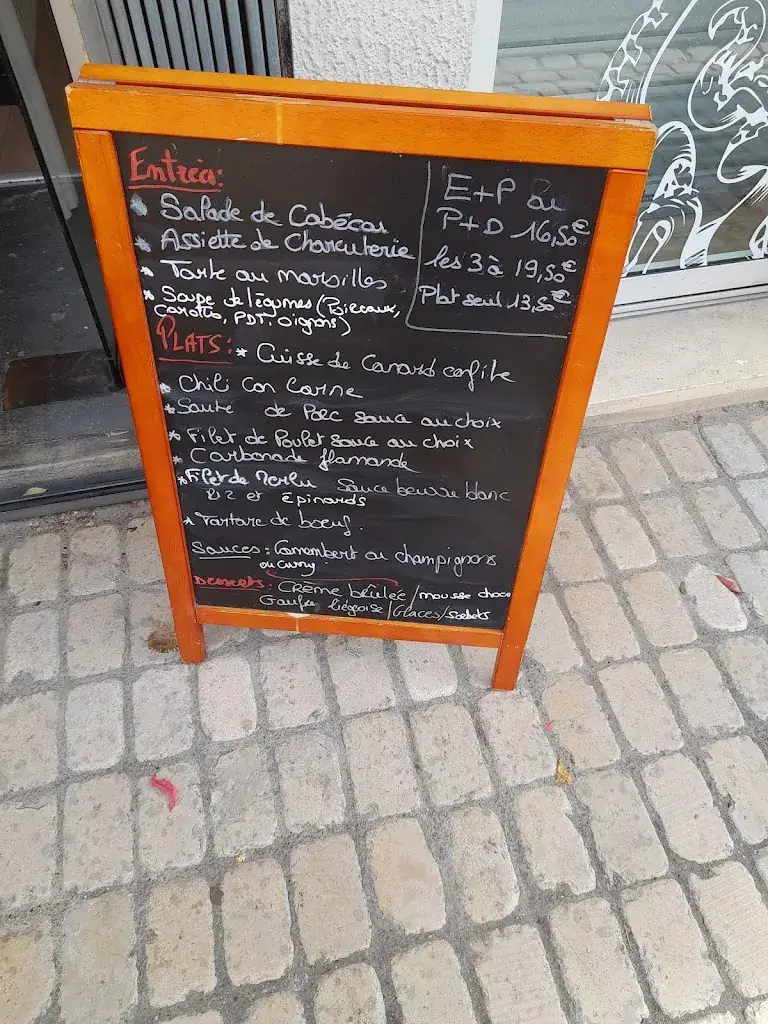 Entrées:
* Salade de Cabécou
* Assiette de Charcuterie
* Tarte au maroilles
* Soupe de légumes (Poireaux,
carottes, PDT, oignons)
E+P ou
P+D 16,50€
les 3 à 19,50€
Plat seul 13,50€
PLATS: * Cuisse de Canard confite
* Chili Con Carne
* Sauté de Porc sauce au choix
* Filet de Poulet sauce au choix
* Carbonade flamande
* Filet de Merlu Sauce beurre blanc
Riz et épinards
* Tartare de boeuf.
Sauces: Camembert ou champignons
ou curry
Desserts: Crème brûlée/mousse choco
Gaufre liégeoise/Glaces/sorbets